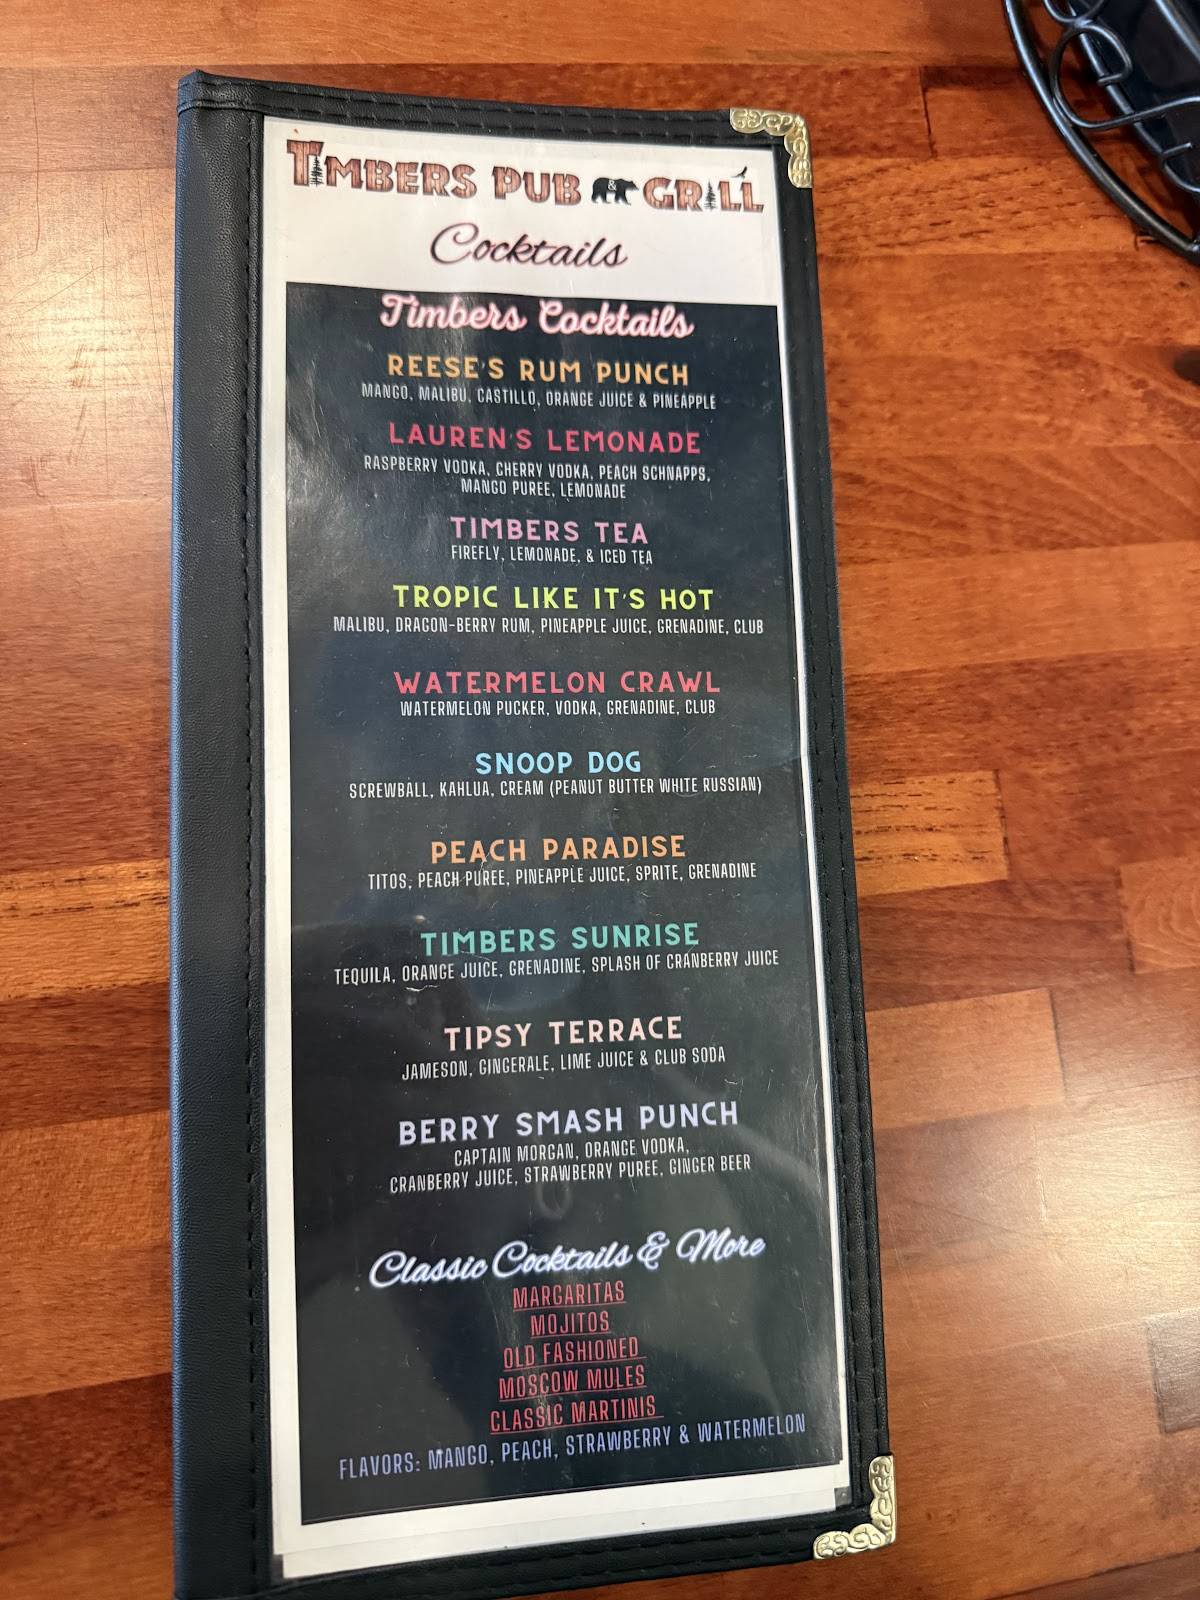 TIMBERS PUB & GRILL
Cocktails
Timbers Cocktails
REESE'S RUM PUNCH
MANGO, MALIBU, CASTILLO, ORANGE JUICE & PINEAPPLE
LAUREN'S LEMONADE
RASPBERRY VODKA, CHERRY VODKA, PEACH SCHNAPPS,
MANGO PUREE, LEMONADE
TIMBERS TEA
FIREFLY, LEMONADE, & ICED TEA
TROPIC LIKE IT'S HOT
MALIBU, DRAGON-BERRY RUM, PINEAPPLE JUICE, GRENADINE, CLUB
WATERMELON CRAWL
WATERMELON PUCKER, VODKA, GRENADINE, CLUB
SNOOP DOG
SCREWBALL, KAHLUA, CREAM (PEANUT BUTTER WHITE RUSSIAN)
PEACH PARADISE
TITOS, PEACH PUREE, PINEAPPLE JUICE, SPRITE, GRENADINE
TIMBERS SUNRISE
TEQUILA, ORANGE JUICE, GRENADINE, SPLASH OF CRANBERRY JUICE
TIPSY TERRACE
JAMESON, GINGERALE, LIME JUICE & CLUB SODA
BERRY SMASH PUNCH
CAPTAIN MORGAN, ORANGE VODKA,
CRANBERRY JUICE, STRAWBERRY PUREE, GINGER BEER
Classic Cocktails & More
MARGARITAS
MOJITOS
OLD FASHIONED
MOSCOW MULES
CLASSIC MARTINIS
FLAVORS: MANGO, PEACH, STRAWBERRY & WATERMELON